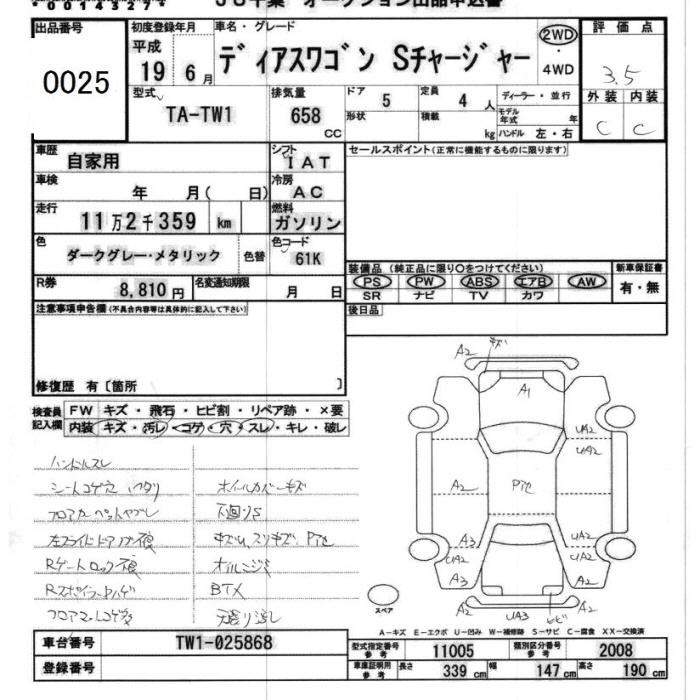 00143274
JU千葉 オークション出品申込書
出品番号 初度登録年月 車名・グレード 評価点
0025
平成 19年 6月
ディアスワゴン Sチャージャー
2WD・4WD
3.5
外装 内装
C C
型式 TA-TW1
排気量 658 CC
ドア 5 定員 4人
ディーラー・並行
形状 積載 kg
モデル年式 年
ハンドル 左・右
車歴 自家用
シフト IAT
セールスポイント(正常に機能するものに限ります)
車検 年 月( 日)
冷房 AC
走行 11万2千359 km
燃料 ガソリン
色 ダークグレー・メタリック 色替
色コード 61K
装備品 (純正品に限り○をつけてください)
新車保証書
PS PW ABS エアB AW 有・無
SR ナビ TV カワ
R券 8,810円
名変通知期限 月 日
後日品
注意事項申告欄(不具合内容等は具体的に記入して下さい)
修復歴 有〔箇所 〕
検査員記入欄
FW キズ・飛石・ヒビ割・リペア跡・×要
内装 キズ・汚レ・コゲ・穴・スレ・キレ・破レ
ハンドルスレ
シートコゲ穴
オイルカバーキズ
フロアカーペットヤブレ
下廻りS
Rゲートロック
オイルニジミ
BTX
A2 キズ
A1
UA2
UA2
A2
A2
A3
UA2
UA2
UA2
A3
A2
UA3
スペア
A-キズ E-エクボ U-凹み W-補修跡 S-サビ C-腐食 XX-交換済
車台番号 TW1-025868
登録番号
型式指定番号 参考 11005
類別区分番号 参考 2008
車庫証明用 参考 長さ 339 cm 幅 147 cm 高さ 190 cm